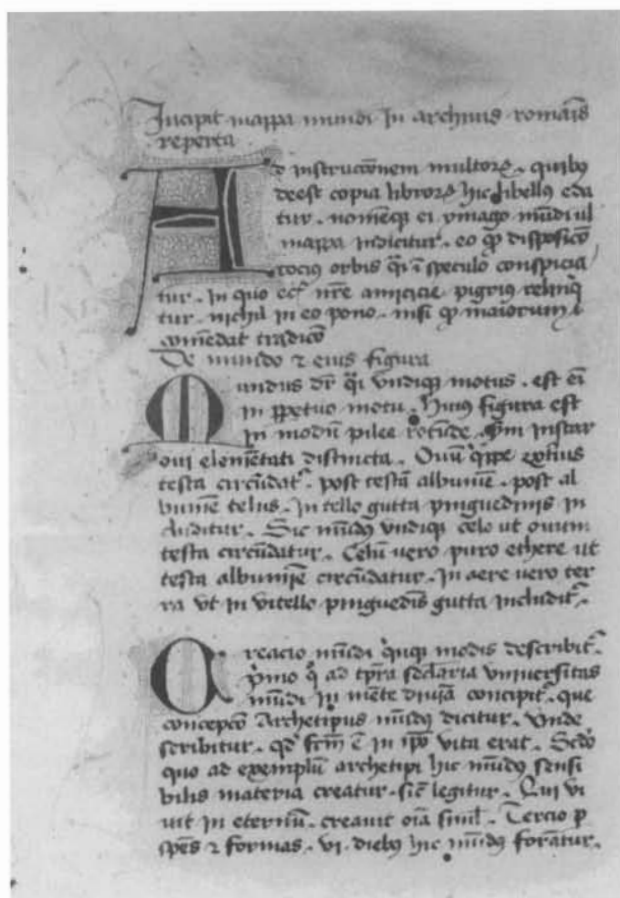 Incipit mappa mundi In archiuis romaīs
reperta
AD instruccōnem multorꝝ . quibꝫ
deest copia librorꝝ hic libellus eda
tur . nomenqꝫ ei ymago mūdi ul
mappa indicitur . eo qꝫ disposicō
tocius orbis q̄i ī speculo conspicia
tur . In quo ec̄ nr̄e amicicie pigrꝰ relinq̄
tur . nichil in eo pono . nisi qꝫ maiorum
comēdat tradicō
De mundo ⁊ eius figura
Mundus dr̄ q̄i vndiqꝫ motus . est eī
in ꝑpetuo motu . Huiꝰ figura est
in modū pilee rotūde . Instar
oui elemētati distincta . Ouū q̄ppe extiꝰ
testa circūdat᷑ . post testā albumē . post al
bumē telus . In tello gutta pinguedinis in
cluditur . Sic mūdꝰ vndiqꝫ celo ut ouum
testa circūdatur . Celū uero puro ethere ut
testa albumīe circūdatur . In aere uero ter
ra vt in vitello pinguedīs gutta includit᷑ .
Creacio mūdi q̄nqꝫ modis describit᷑ .
p̄mo q̄ ad tp̄ra sec̄laria vniuersitas
mūdi in mēte diuīa concipit᷑ . que
concepcō Archetipus mūdꝰ dicitur . Vnde
scribitur . qd̄ fc̄m ē in ip̄o vita erat . Scdō
quo ad exemplū archetipi hic mūdꝰ sensi
bilis materia creatur . sic̄ legitur . Qui vi
uit in eternū . creauit oīa simł . Tercio ꝑ
sp̄es ⁊ formas . vi . diebꝰ hic mūdꝰ format᷑ .